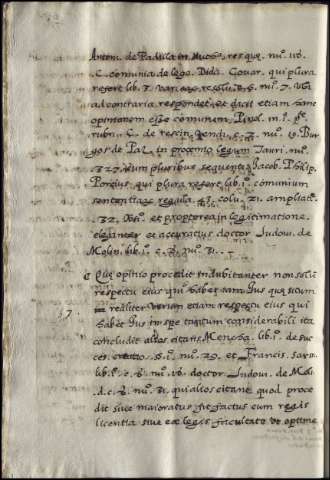 Anton. de Padilla in Auth. res quę. nu. 116.
C. comunia de lega. Didac. Covar. qui plura
refert lib. 3. var. resolu. c. 5. nu. 7. Ubi
ad contraria respondet et dicit etiam hanc
opinionem esse comunem Pinel. in l. 2ª
rubri. C. de rescindenda nu. 19. Bur
gos de Paz. in proemio legum Tauri nu.
327. cum pluribus sequentib. Jacob. Philip.
Portius, qui plura refert lib. 1. comunium
sententia regula colu. 21. ampliat.
32. et propterea in legitimatione
eleganter et accuratius doctor Ludov. de
Molin. lib. 1. c. 2. nu. 21.
Que opinio procedit indubitanter non solũ
respectu eius qui habet tam. ius quęsitum
realiter verum etiam respectu eius qui
habet ius in spe tantum considerabili ita
concludit alios citatis Menchaca. lib. 1. de suc
ces. creatio. §. 1. nu. 29. et Francis. Sarm.
lib. 1. c. 8. nu. 16. doctor Ludov. de Moli.
d. c. 2. nu. 21. qui alios citant quod proce
dit sive maioratus sit factus cum regis
licentia sive ex legis facultate ut optime